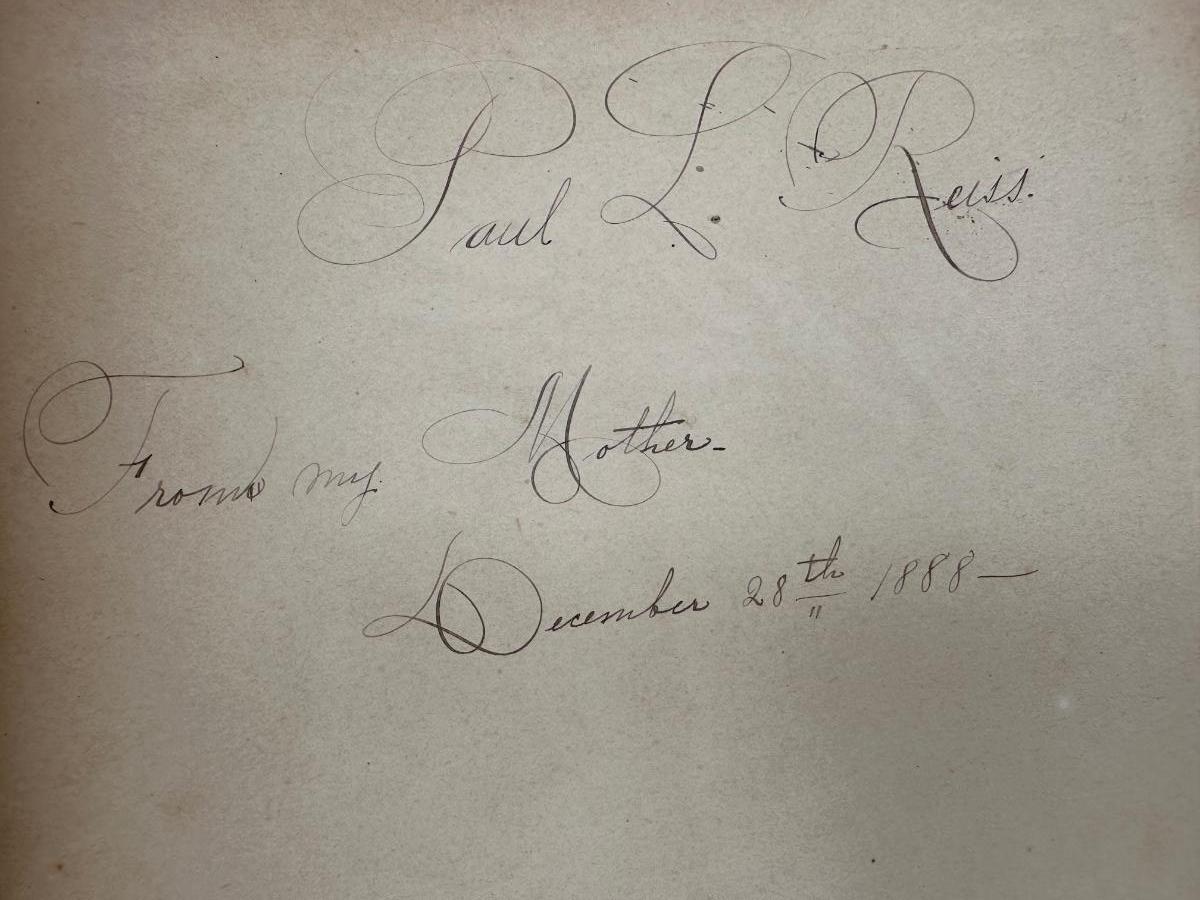 Paul L. Reiss.
From my Mother-
December 28th 1888—